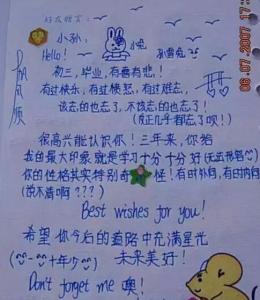 好友赠言:
一帆风顺
小孙:
Hello! 小兔
初三,毕业,有喜有悲!
有过快乐,有过愤怒,有过难志,
该志的也志了,不该志的也志了!
(反正几乎都志了呗!)
很高兴能认识你!三年来,你给
我的最大印象就是学习十分十分好(无法形容)
你的性格其实特别奇怪!有时外向,有时内向
(说不清啊???)
Best wishes for you!
希望你今后的道路中充满星光
(十年少) 未来美好!
Don't forget me 噢!
06.07.2007 17: